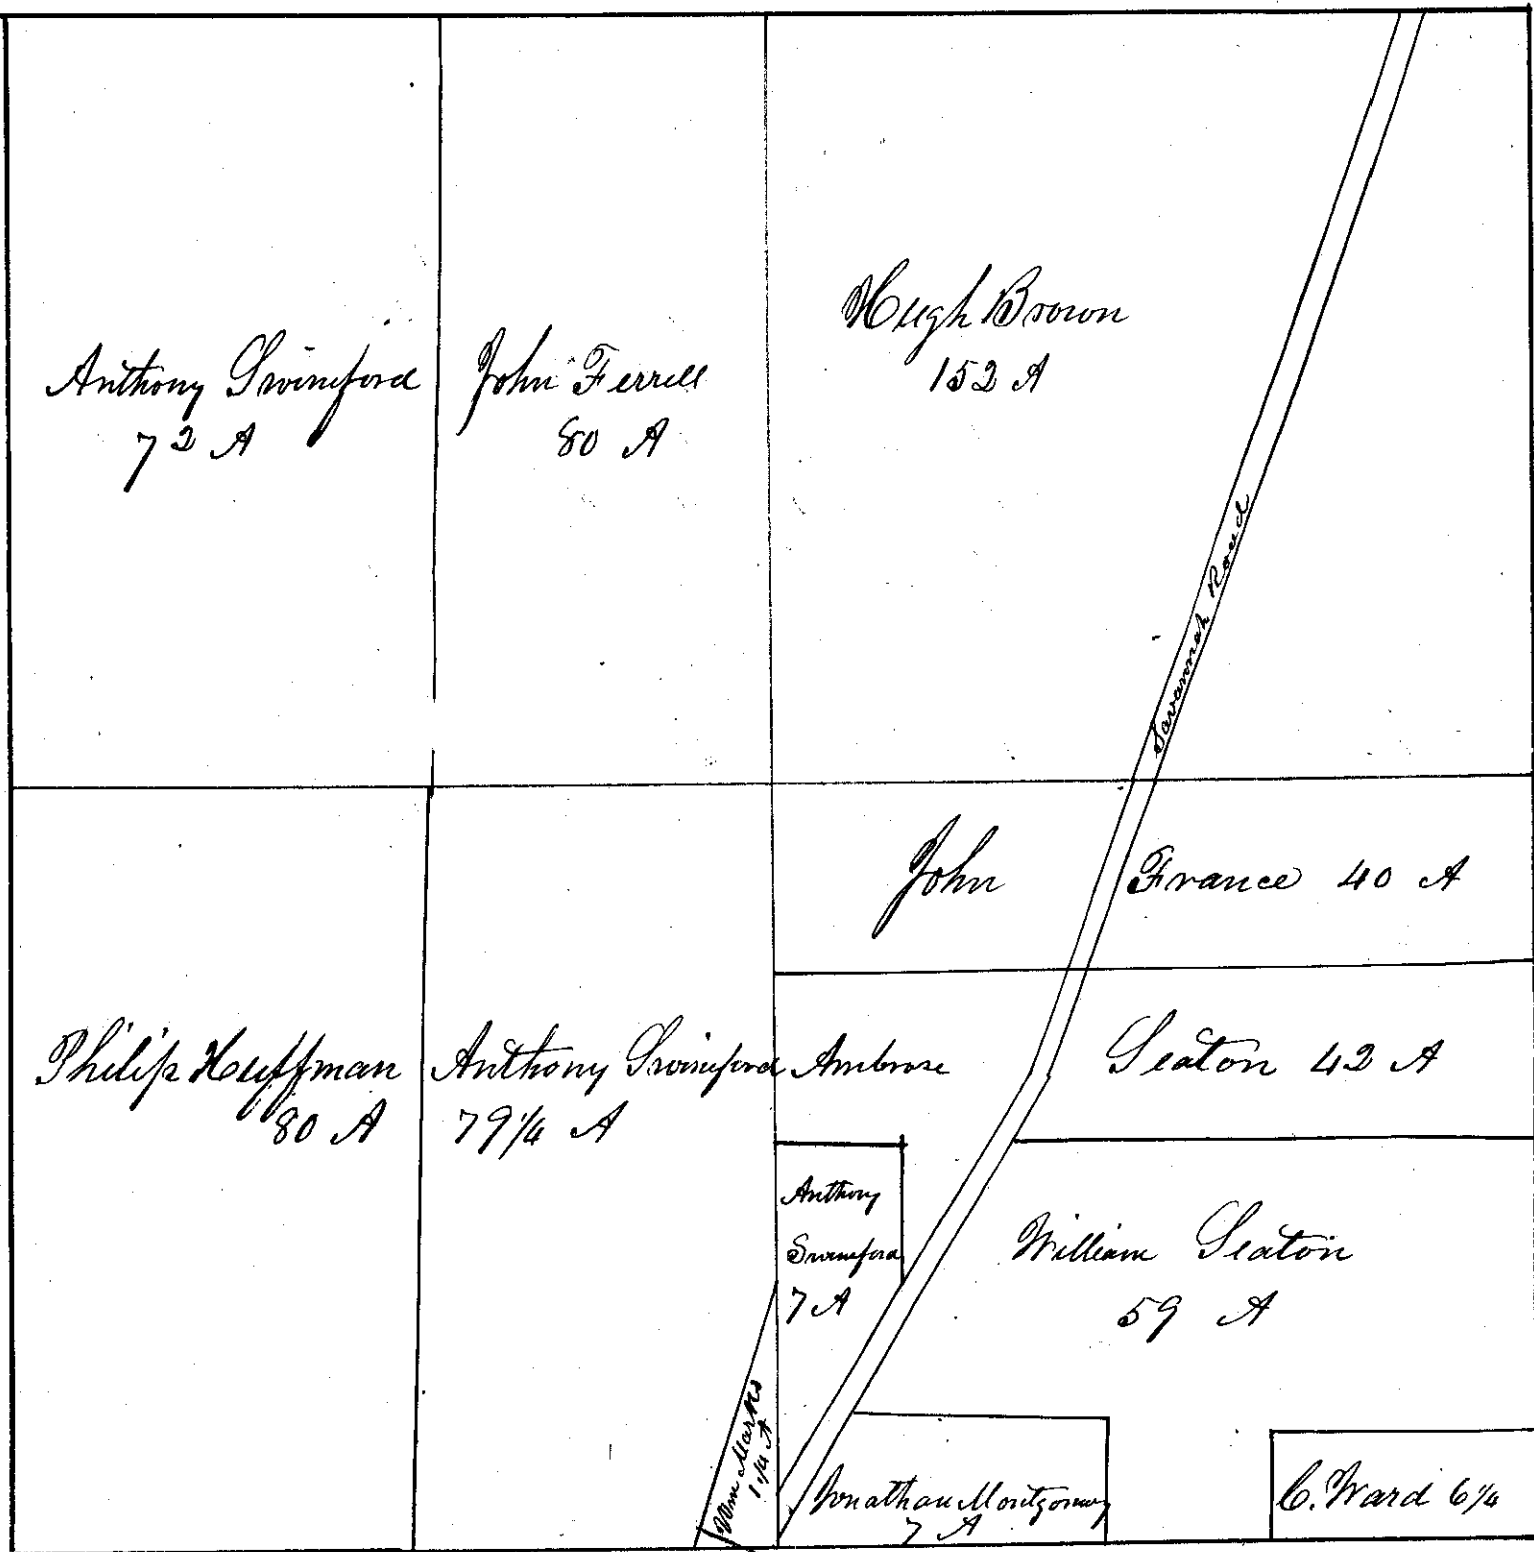 Anthony Swineford
72 A
John Ferrell
80 A
Hugh Brown
152 A
Savannah Road
John France 40 A
Philip Huffman
80 A
Anthony Swineford
79 1/4 A
Ambrose Seaton 42 A
Anthony
Swineford
7 A
William Seaton
59 A
Wm Marks
1 1/4 A
Jonathan Montgomery
7 A
C. Ward 6 1/4